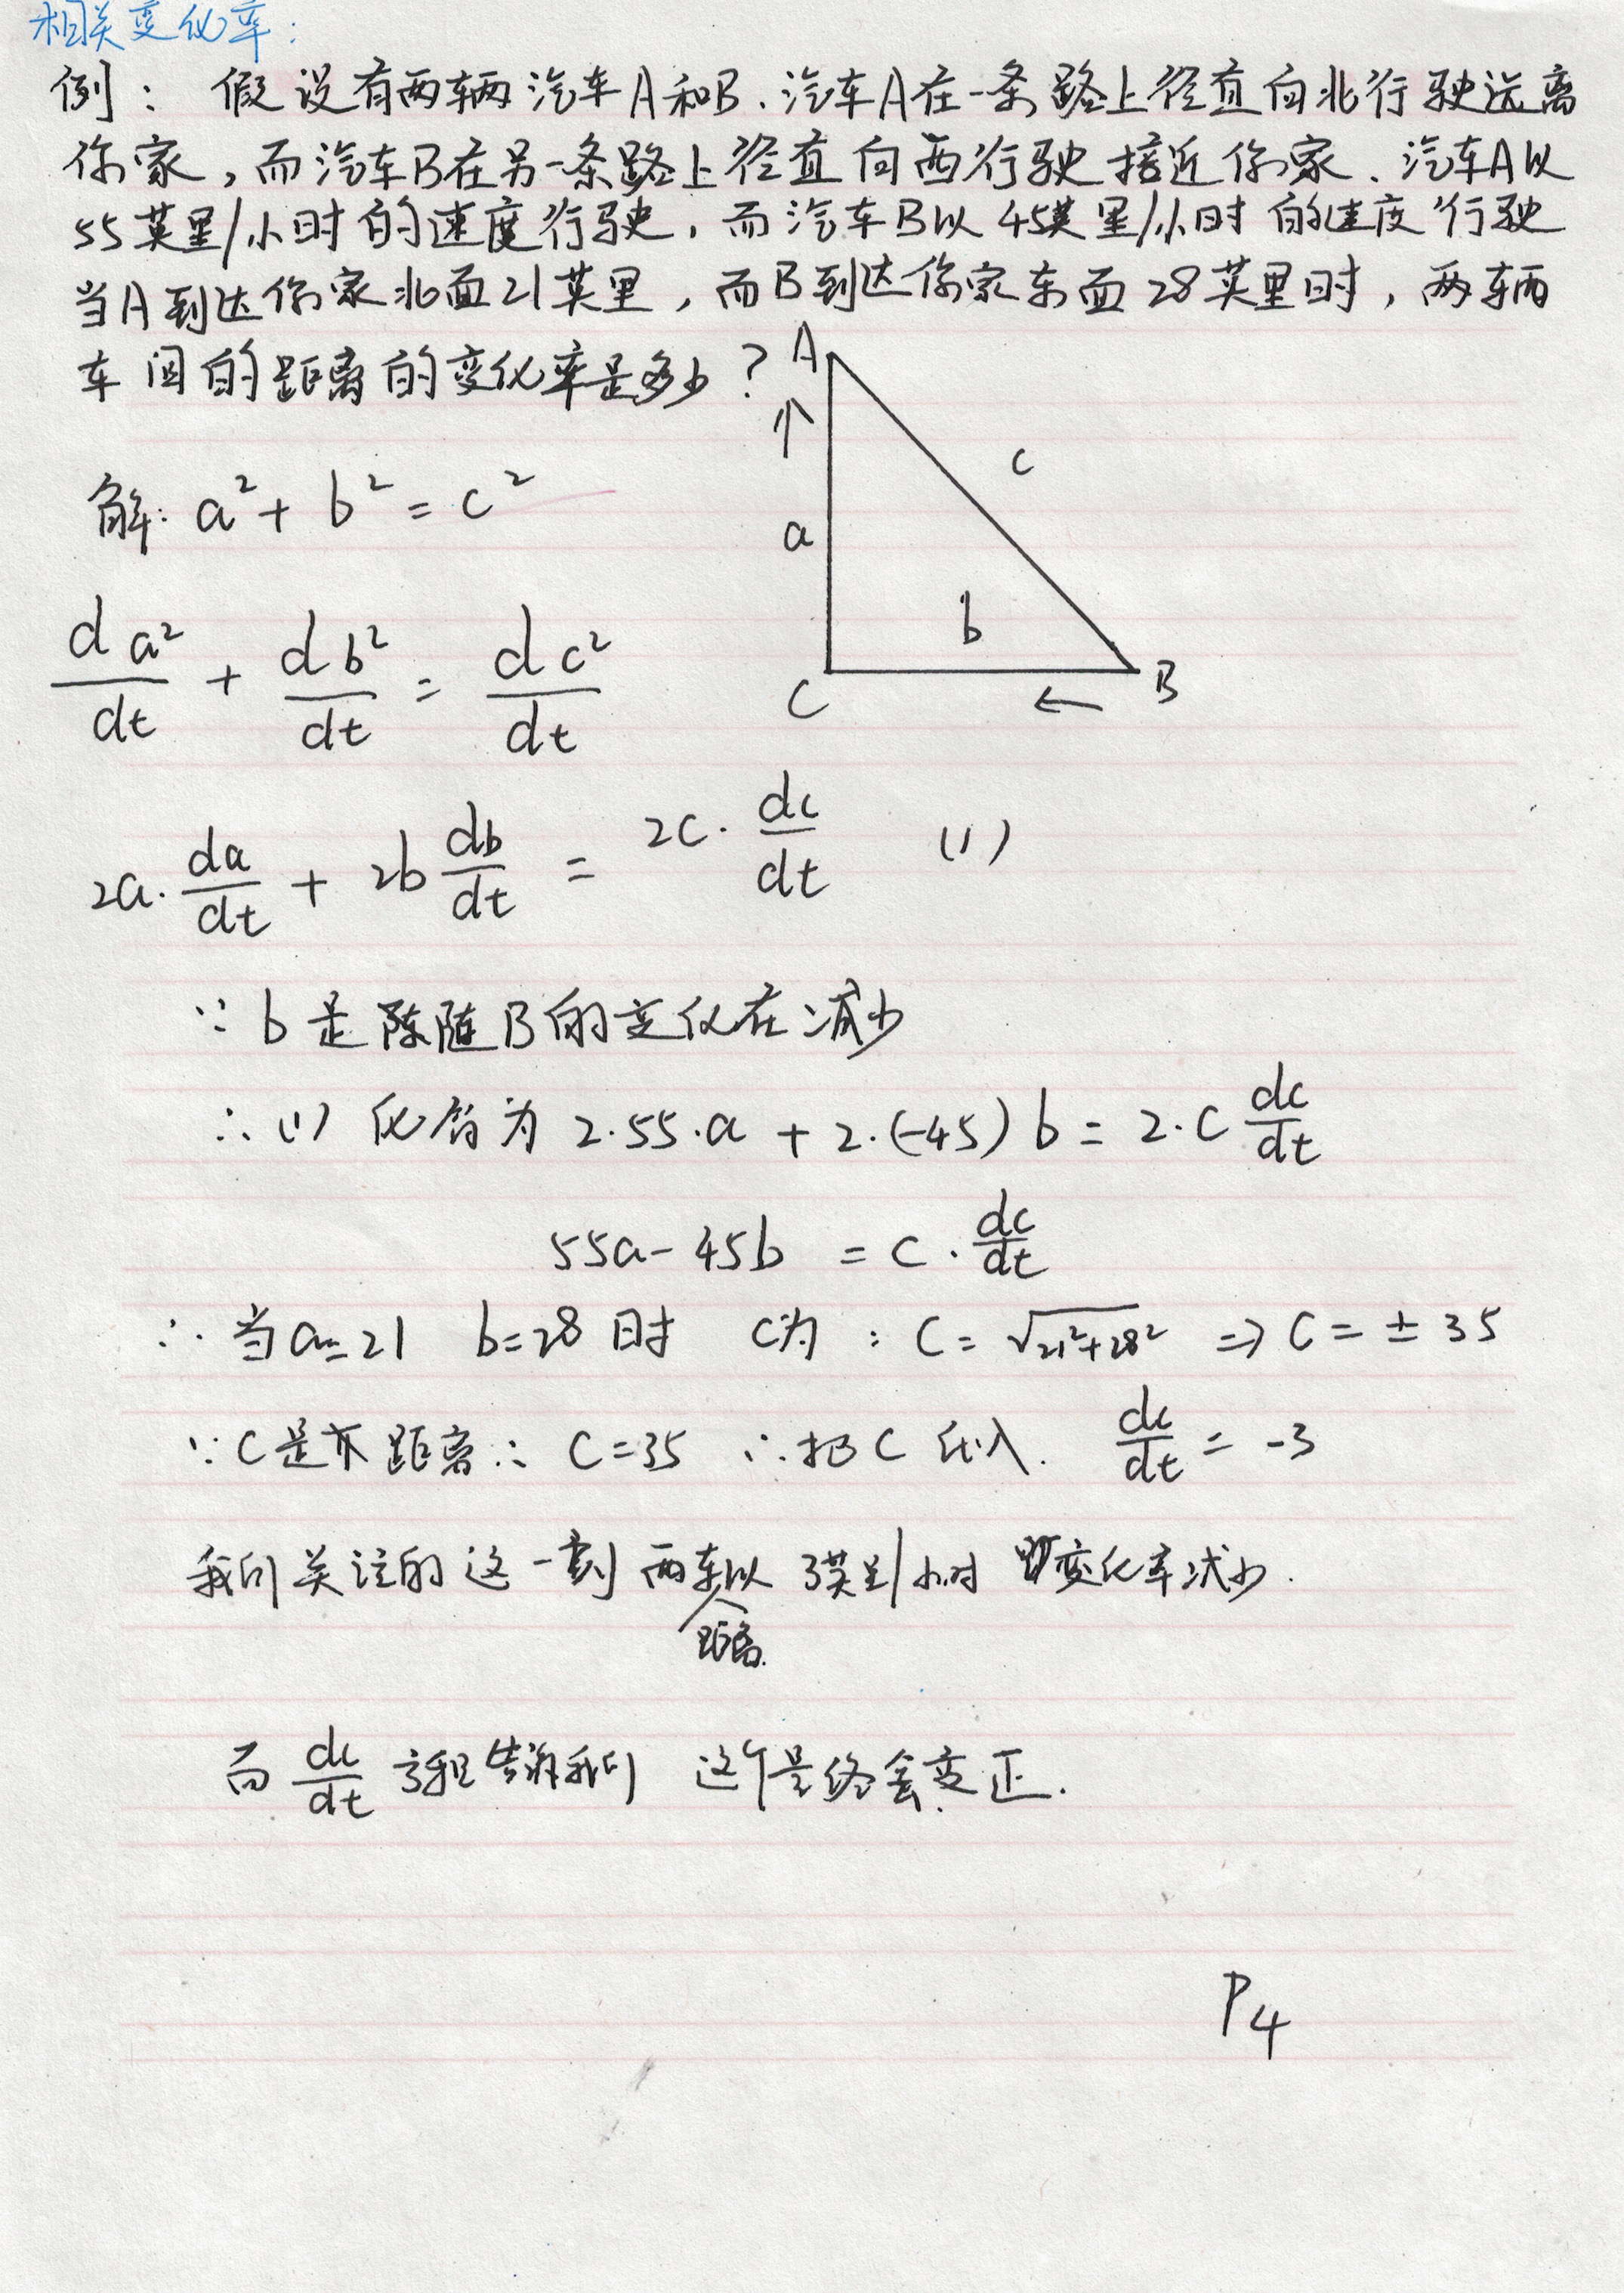 相关变化率:
例: 假设有两辆汽车A和B.汽车A在一条路上径直向北行驶远离
你家,而汽车B在另一条路上径直向西行驶接近你家.汽车A以
55英里/小时的速度行驶,而汽车B以45英里/小时的速度行驶
当A到达你家北面21英里,而B到达你家东面28英里时,两辆
车间的距离的变化率是多少?
A
c
a
b
C
B
解: a² + b² = c²
da²/dt + db²/dt = dc²/dt
2a·da/dt + 2b db/dt = 2c·dc/dt (1)
∵ b是 随B的变化在减少
∴ (1) 化简为 2·55·a + 2·(-45)b = 2·c dc/dt
55a - 45b = c·dc/dt
∴ 当a=21 b=28时 c为: c = √21²+28² ⇒ c = ±35
∵ c是 距离 ∴ c=35 ∴ 把c代入. dc/dt = -3
我们关注的这一刻 两车距离以 3英里/小时 变化率减少.
而 dc/dt 方程告诉我们 这个量终会变正.
P4